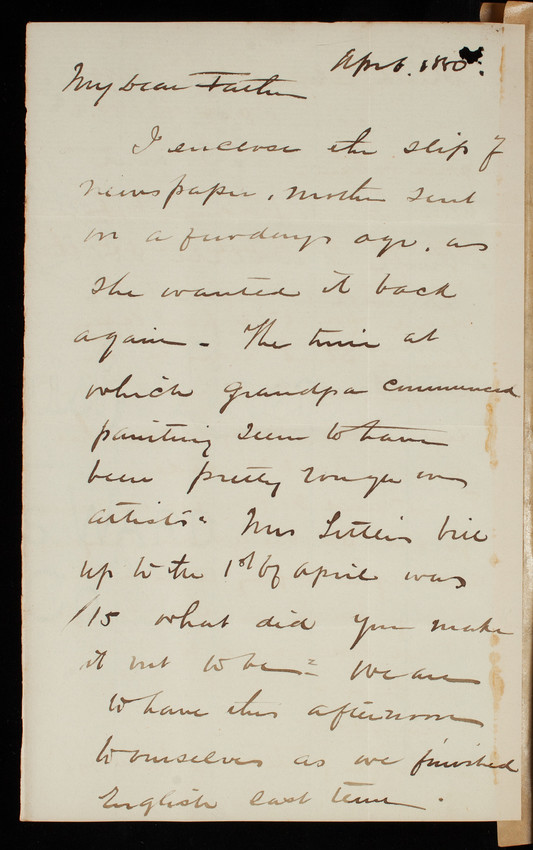 Apr 6. 1880.
My Dear Father
I enclose the slip of
newspaper, mother sent
on a few days ago, as
she wanted it back
again - The time at
which Grandpa commenced
painting seem to have
been pretty rough on
artists. Mrs bill
up to the 1st of april was
15 what did you make
it out to be = We are
to have this afternoon
to ourselves as we finished
English last term.